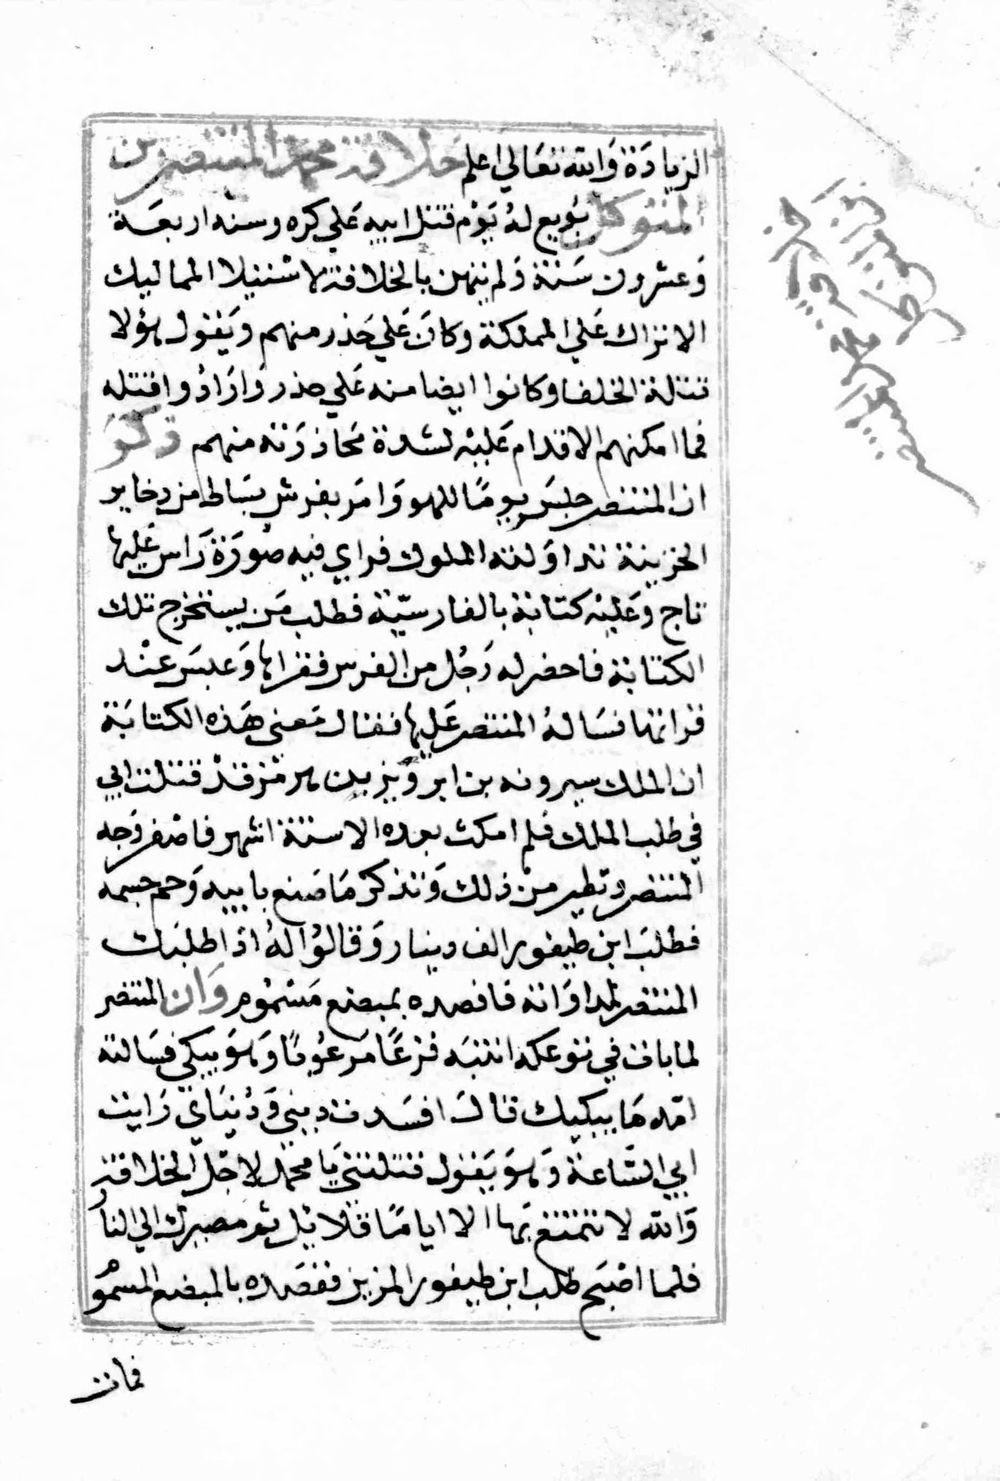 الزيادة والله تعالي اعلم خلافة محمد المنتصر بن
المتوكل بويع له يوم قتل ابيه علي كره وسنه اربعة
وعشرون سنة ولم يتهن بالخلافة لاستيلا المماليك
الاتراك علي المملكة وكان علي حذر منهم ويقول هولا
قتلة الخلفا وكانوا ايضا منه علي حذر وارادوا قتله
فما امكنهم الاقدام عليه لشدة محاذرته منهم ذكر
ان المنتصر جلس يوما للهو وامر بفرش بساط من دخاير
الخزينة تداولته الملوك فراي فيه صورة راس عليها
تاج وعليه كتابة بالفارسية فطلب من يستخرج تلك
الكتابة فاحضر له رجل من الفرس فقراها وعبس عند
قراتها فساله المنتصر عليها فقال معني هذه الكتابة
ان الملك سيرويه بن ابرويز بن هرمز قد قتلت ابي
في طلب الملك فلم امكث بعده الا ستة اشهر فاصفر وجه
المنتصر وتطير من ذلك وتذكر ما صنع بابيه وحم جسمه
فطلب ابن طيفور الف دينار وقالوا له اذا طلبك
المنتصر لمداواته فافصده بمبضع مسموم وان المنتصر
لما بات في توعكه انتبه فزعا مرعوبا وهو يبكي فسالته
امه ما يبكيك قال افسدت ديني ودنياي رايت
ابي الساعة وهو يقول قتلتني يا محمد لاجل الخلافة
والله لا تتمتع بها الا اياما قلايل ثم مصيرك الي النار
فلما اصبح طلب ابن طيفور المزين ففصده بالمبضع المسمو
فمات